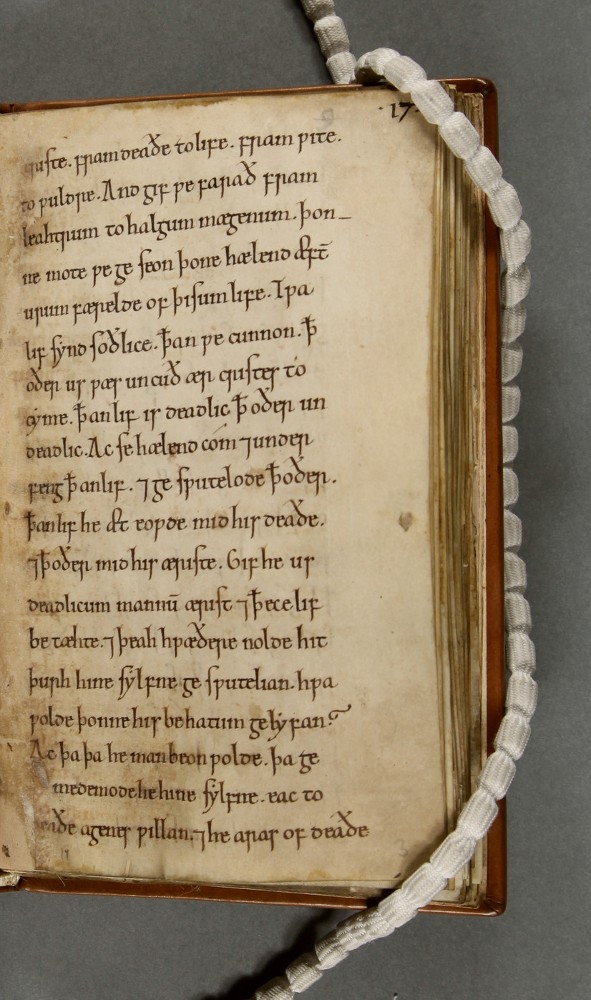 17
ꞃiste. fram deaðe to life. fram ƿite.
to ƿuldre. And gif ƿe farað fram
leahtrum to halgum mægenum. þon_
ne mote ƿe ge seon þone hælend æft̄
urum færelde of þisum life. Tƿa
lif synd soðlice. þ̄ an ƿe cunnon. þ̄
oðer us ƿæs uncuð ær cristes to
cyme. þ̄ an lif is deadlic þ̄ oðer un
deadlic. Ac se hælend cóm ⁊ under
feng þ̄ an lif. ⁊ ge sƿutelode þ̄ oðer.
þ̄ an lif he æt eoƿde mid his deaðe.
⁊ þ̄ oðer mid his æriste. Gif he us
deadlicum mannū ærist ⁊ þ̄ ece lif
be tæhte. ⁊ þeah hƿæðere nolde hit
þurh hine sylfne ge sƿutelian. hƿa
ƿolde þonne his behatum gelyfan?
Ac þa þa he man beon ƿolde. þa ge
medemode he hine sylfne. eac to
deaðe agenes ƿillan. ⁊ he aras of deaðe